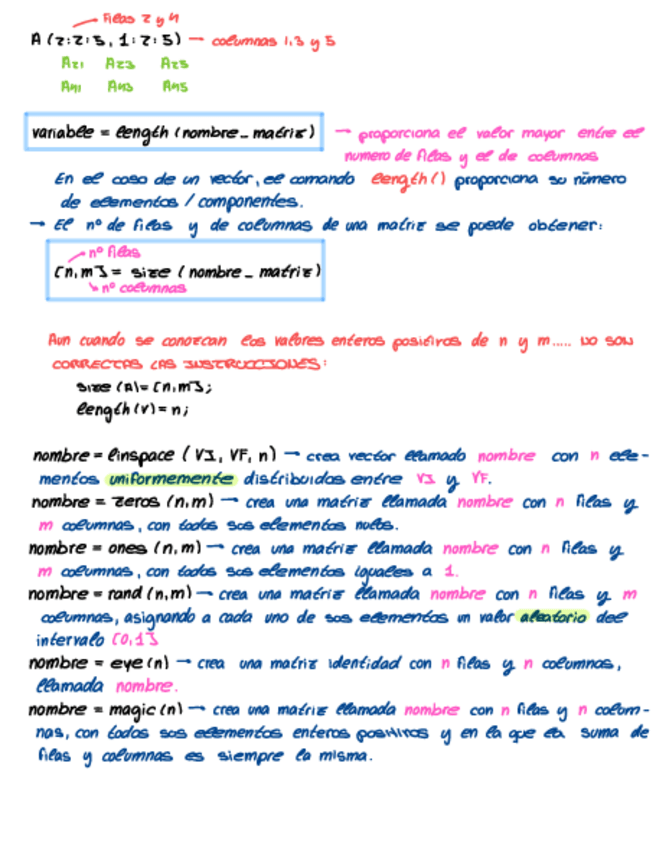 Filas 2 y 4
A (2:2:5, 1:2:5) → columnas 1,3 y 5
A21 A23 A25
A41 A43 A45
variable = length (nombre_matriz) → proporciona el valor mayor entre el
numero de filas y el de columnas
En el caso de un vector, el comando length() proporciona su número
de elementos / componentes.
→ El nº de filas y de columnas de una matriz se puede obtener:
nº filas
[n,m] = size (nombre_matriz)
nº columnas
Aun cuando se conozcan los valores enteros positivos de n y m..... NO SON
CORRECTAS LAS INSTRUCCIONES:
size (A)= [n,m];
length (v) = n;
nombre = linspace (VI, VF, n) → crea vector llamado nombre con n ele-
mentos uniformemente distribuidos entre VI y VF.
nombre = zeros (n,m) → crea una matriz llamada nombre con n filas y
m columnas, con todos sus elementos nulos.
nombre = ones (n,m) → crea una matriz llamada nombre con n filas y
m columnas, con todos sus elementos iguales a 1.
nombre = rand (n,m) → crea una matriz llamada nombre con n filas y m
columnas, asignando a cada uno de sus elementos un valor aleatorio del
intervalo [0,1]
nombre = eye (n) → crea una matriz identidad con n filas y n columnas,
llamada nombre.
nombre = magic (n) → crea una matriz llamada nombre con n filas y n colum-
nas, con todos sus elementos enteros positivos y en la que la suma de
filas y columnas es siempre la misma.